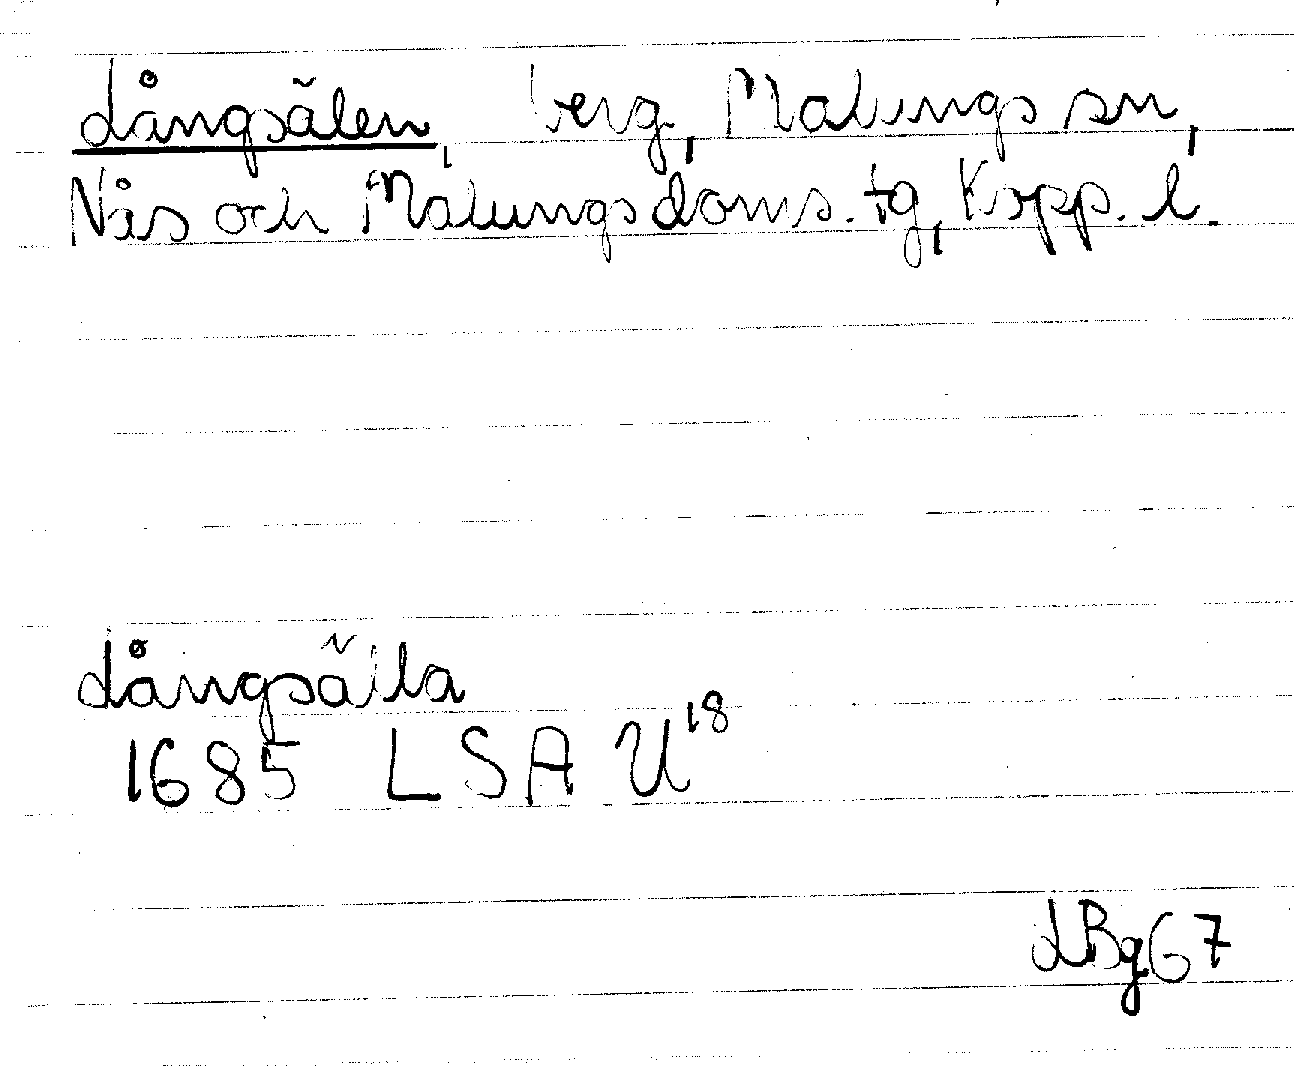 Långsälen, berg, Malungs sn,
Nås och Malungs doms. tg, Kopp. l.
Långsälla
1685 LSA U18
LBg67